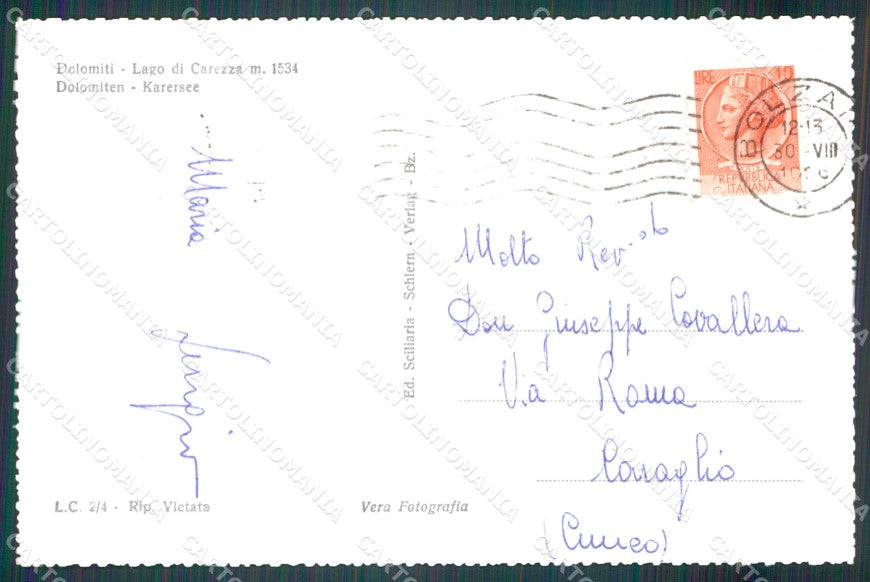 Dolomiti - Lago di Carezza m. 1534
Dolomiten - Karersee
Maria
Ed. Sciliaria - Schlern - Verlag - Bz.
LIRE 10
REPUBBLICA
ITALIANA
BOLZAN
12-13
30 VIII
Molto Rev.do
Don Giuseppe Cavallera
Via Roma
Caraglio
(Cuneo)
L.C. 2/4 - Rip. Vietata
Vera Fotografia
CARTOLINOMANIA